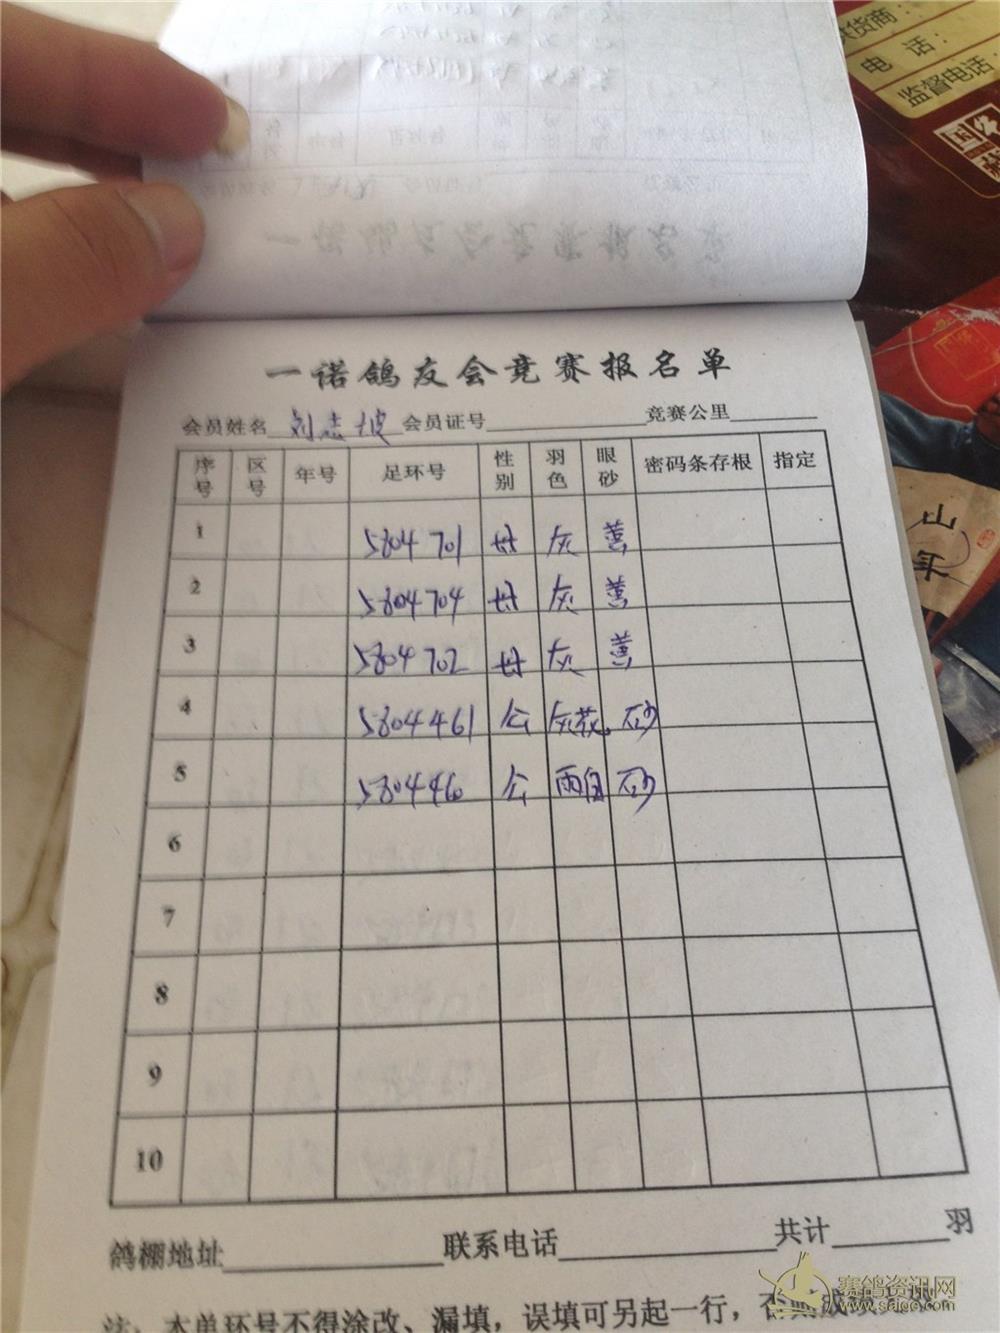 供货商：
电 话：
监督电话
山
年
一诺鸽友会竞赛报名单
会员姓名 刘志坡 会员证号 竞赛公里
序号 区号 年号 足环号 性别 羽色 眼砂 密码条存根 指定
1 5804701 母 灰 黄
2 5804704 母 灰 黄
3 5804702 母 灰 黄
4 5804461 公 灰花 砂
5 5804460 公 雨白 砂
6
7
8
9
10
鸽棚地址 联系电话 共计 羽
注：本单环号不得涂改、漏填，误填可另起一行，否则成绩
赛鸽资讯网
www.saige.com